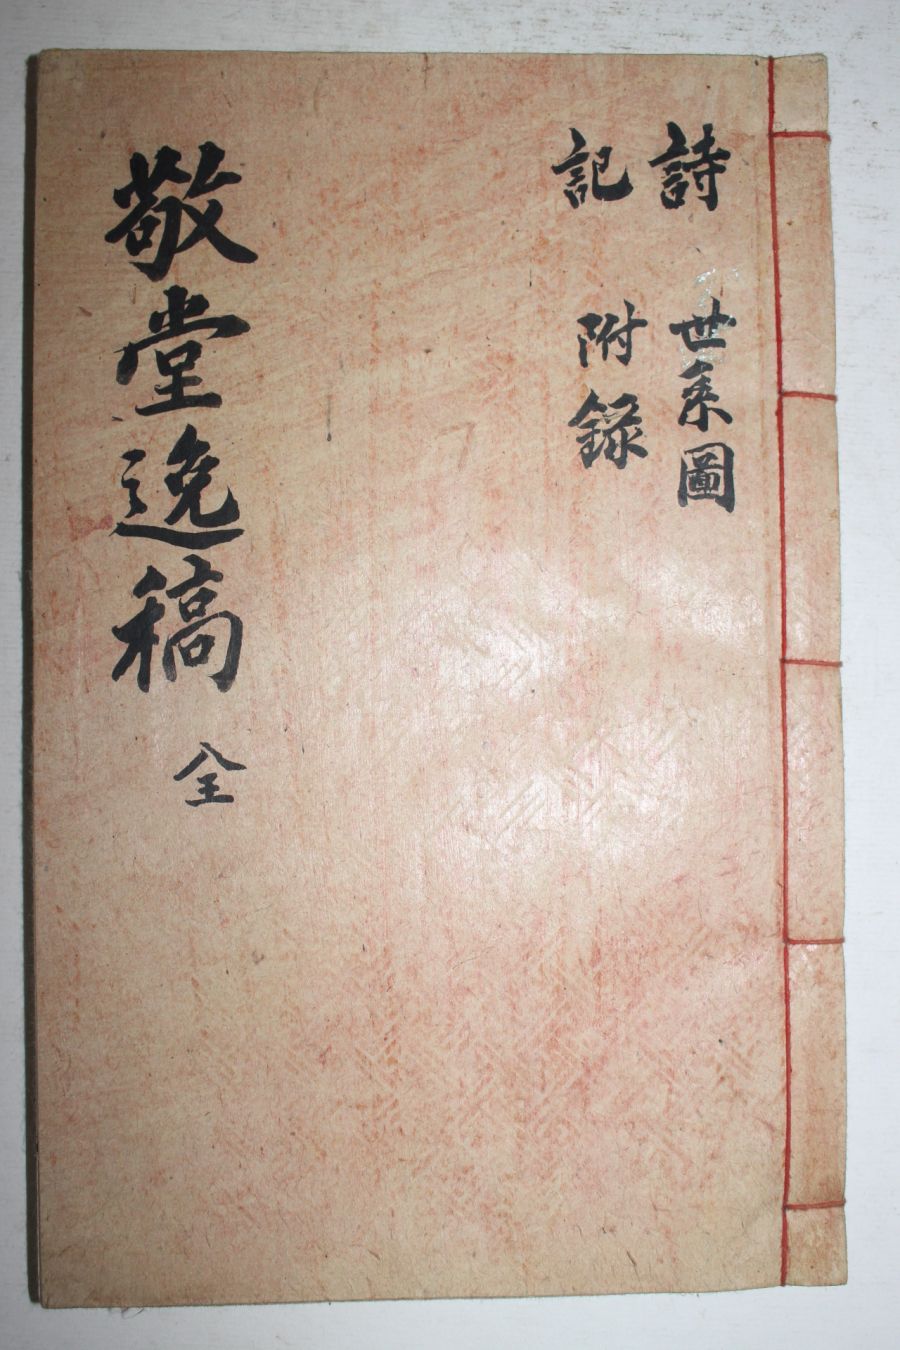 詩 世系圖
記 附錄
敬堂逸稿 全